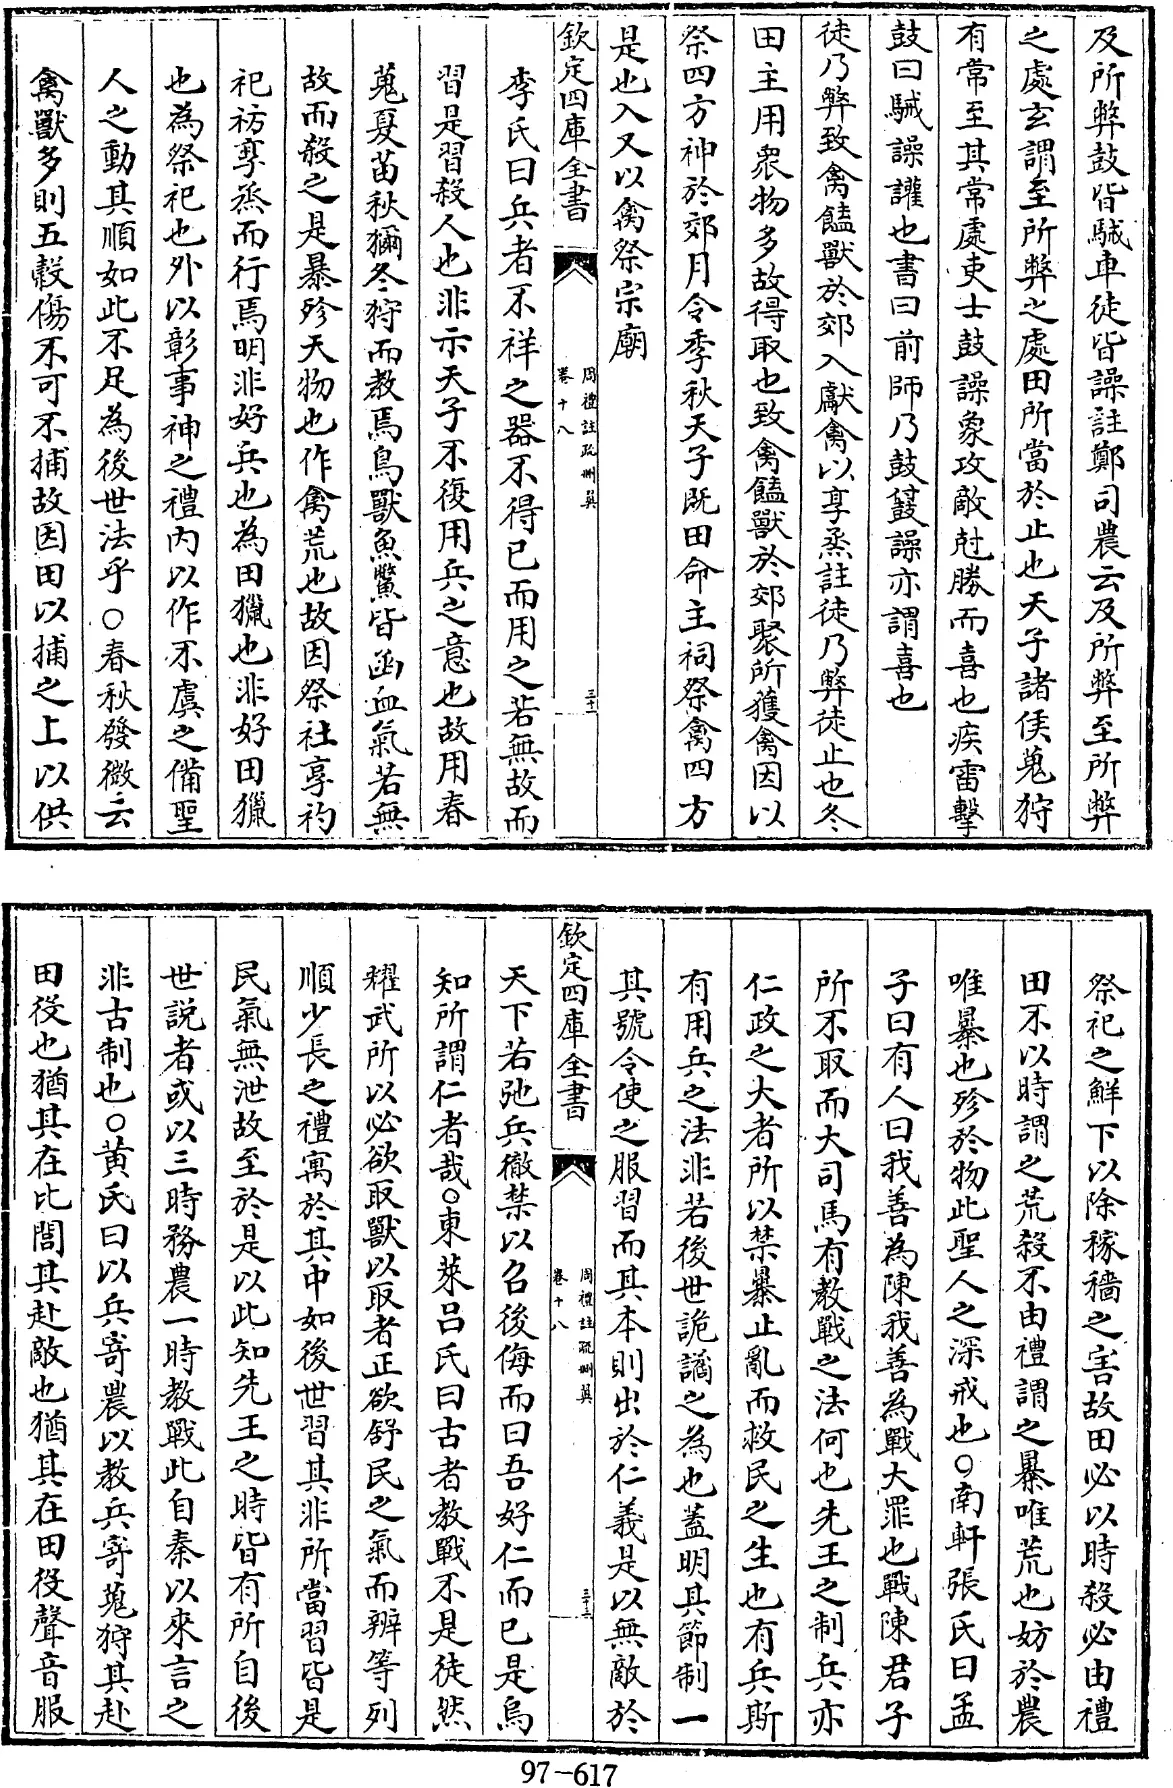 及所弊鼓皆駴車徒皆譟註鄭司農云及所弊至所弊
之處玄謂至所弊之處田所當於止也天子諸侯蒐狩
有常至其常處吏士鼓譟象攻敵尅勝而喜也疾雷擊
鼓曰駴譟讙也書曰前師乃鼓鼖譟亦謂喜也
徒乃弊致禽饁獸於郊入獻禽以享烝註徒乃弊徒止也冬
田主用衆物多故得取也致禽饁獸於郊聚所獲禽因以
祭四方神於郊月令季秋天子既田命主祠祭禽四方
是也入又以禽祭宗廟
欽定四庫全書
周禮註疏刪翼
卷十八
三十二
李氏曰兵者不祥之器不得已而用之若無故而
習是習殺人也非示天子不復用兵之意也故用春
蒐夏苗秋獮冬狩而教焉鳥獸魚鱉皆函血氣若無
故而殺之是暴殄天物也作禽荒也故因祭社享礿
祀祊享烝而行焉明非好兵也為田獵也非好田獵
也為祭祀也外以彰事神之禮內以作不虞之備聖
人之動其順如此不足為後世法乎○春秋發微云
禽獸多則五穀傷不可不捕故因田以捕之上以供
祭祀之鮮下以除稼穡之害故田必以時殺必由禮
田不以時謂之荒殺不由禮謂之暴唯荒也妨於農
唯暴也殄於物此聖人之深戒也○南軒張氏曰孟
子曰有人曰我善為陳我善為戰大罪也戰陳君子
所不取而大司馬有教戰之法何也先王之制兵亦
仁政之大者所以禁暴止亂而救民之生也有兵斯
有用兵之法非若後世詭譎之為也蓋明其節制一
其號令使之服習而其本則出於仁義是以無敵於
欽定四庫全書
周禮註疏刪翼
卷十八
三十三
天下若弛兵徹禁以召後侮而曰吾好仁而已是烏
知所謂仁者哉○東萊呂氏曰古者教戰不是徒然
耀武所以必欲取獸以取者正欲舒民之氣而辨等列
順少長之禮寓於其中如後世習其非所當習皆是
民氣無泄故至於是以此知先王之時皆有所自後
世說者或以三時務農一時教戰此自秦以來言之
非古制也○黃氏曰以兵寄農以教兵寄蒐狩其赴
田役也猶其在比閭其赴敵也猶其在田役聲音服
97-617